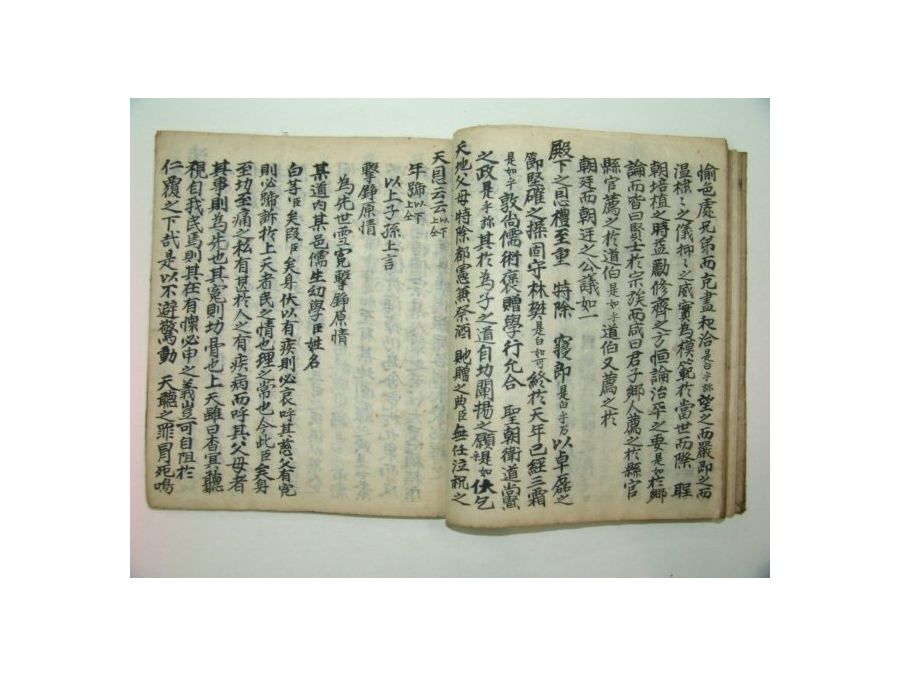 愉色處兄弟而克盡和洽是白乎旀望之而嚴即之而
溫棣〻之儀抑〻之威實為模範於當世而際 聖
朝培植之時益勵修齊之方恒論治平之要是如於鄉
論而皆曰賢士於宗族而咸曰君子鄉人薦之於縣官
縣官薦之於道伯是如乎道伯又薦之於
朝廷而朝廷之公議如一
殿下之恩禮至重 特除 寢郎是白乎乃以卓磊之
節堅確之操固守林樊是白如可終於天年已經三霜
是如乎敦尚儒術褒贈學行允合 聖朝衛道崇
之政是乎旀其於為子之道自切闡揚之願是如乎伏乞
天地父母特除都憲兼祭酒 貤贈之典臣無任泣祝之
天恩云云以下上仝
年歸以下上仝
以上子孫上言
擊錚原情
為先世雪寃擊錚原情
某道內某邑儒生幼學臣姓名
白等臣矣段臣矣身伏以有疾則必哀呼其慈父有寃
則必諦訴於上天者民之情也理之常也今此臣矣身
至切至痛之私有甚於人之有疾病而呼其父母者
其事則為先也其寃則切骨也上天雖曰杳冥聽
視自我民焉則其在有懷必申之義豈可自阻於
仁覆之下哉是以不避驚動 天聽之罪冒死鳴